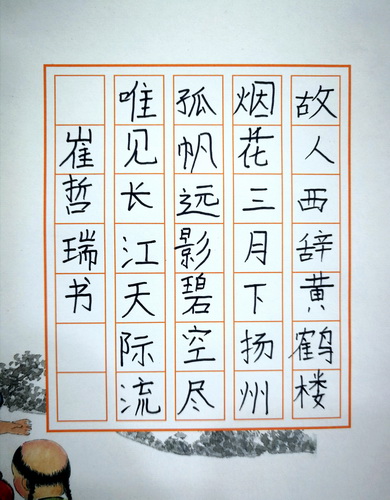 故人西辞黄鹤楼
烟花三月下扬州
孤帆远影碧空尽
唯见长江天际流
崔哲瑞书